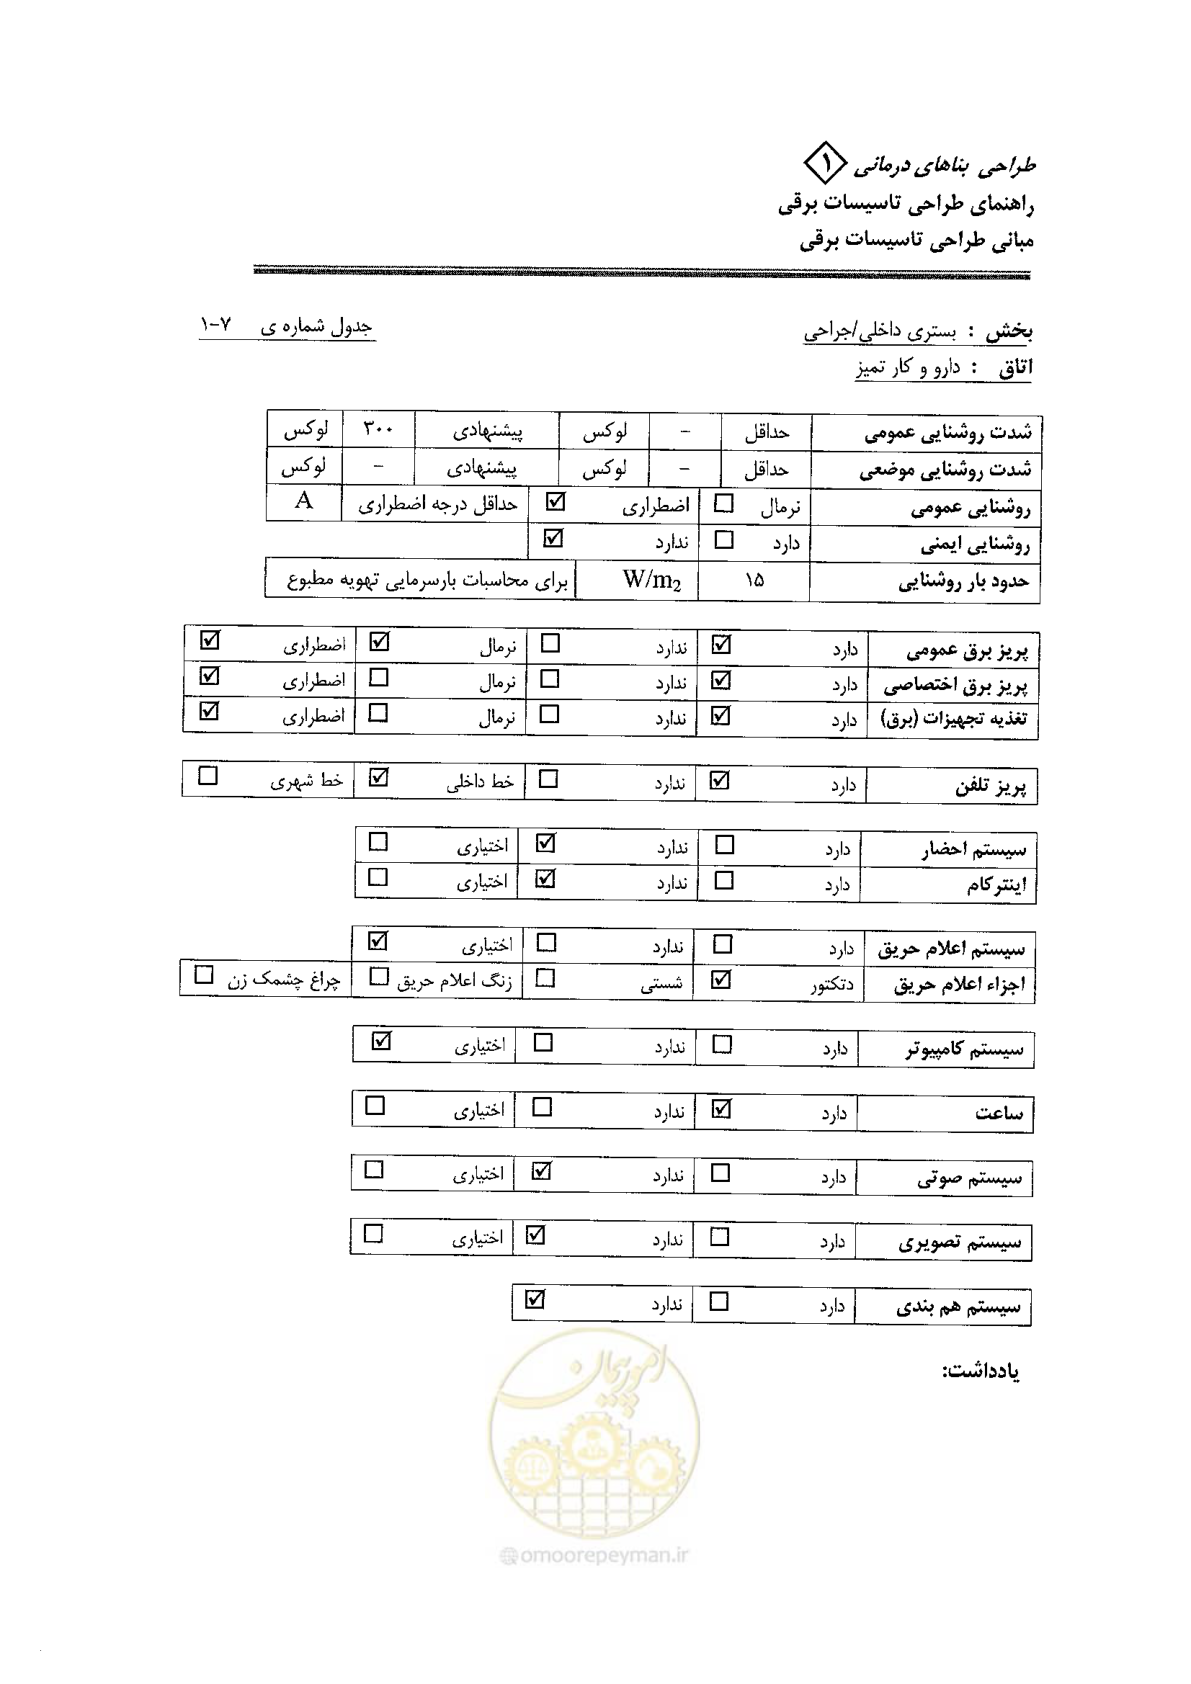 طراحی بناهای درمانی ۱
راهنمای طراحی تاسیسات برقی
مبانی طراحی تاسیسات برقی
بخش : بستری داخلی/جراحی جدول شماره ی ۷-۱
اتاق : دارو و کار تمیز
شدت روشنایی عمومی حداقل - لوکس پیشنهادی ۳۰۰ لوکس
شدت روشنایی موضعی حداقل - لوکس پیشنهادی - لوکس
روشنایی عمومی نرمال ☐ اضطراری ☑ حداقل درجه اضطراری A
روشنایی ایمنی دارد ☐ ندارد ☑
حدود بار روشنایی ۱۵ W/m2 برای محاسبات بارسرمایی تهویه مطبوع
پریز برق عمومی دارد ☑ ندارد ☐ نرمال ☑ اضطراری ☑
پریز برق اختصاصی دارد ☑ ندارد ☐ نرمال ☐ اضطراری ☑
تغذیه تجهیزات (برق) دارد ☑ ندارد ☐ نرمال ☐ اضطراری ☑
پریز تلفن دارد ☑ ندارد ☐ خط داخلی ☑ خط شهری ☐
سیستم احضار دارد ☐ ندارد ☑ اختیاری ☐
اینترکام دارد ☐ ندارد ☑ اختیاری ☐
سیستم اعلام حریق دارد ☐ ندارد ☐ اختیاری ☑
اجزاء اعلام حریق دتکتور ☑ شستی ☐ زنگ اعلام حریق ☐ چراغ چشمک زن ☐
سیستم کامپیوتر دارد ☐ ندارد ☐ اختیاری ☑
ساعت دارد ☑ ندارد ☐ اختیاری ☐
سیستم صوتی دارد ☐ ندارد ☑ اختیاری ☐
سیستم تصویری دارد ☐ ندارد ☑ اختیاری ☐
سیستم هم بندی دارد ☐ ندارد ☑
یادداشت:
امور پیمان
@omoorepeyman.ir